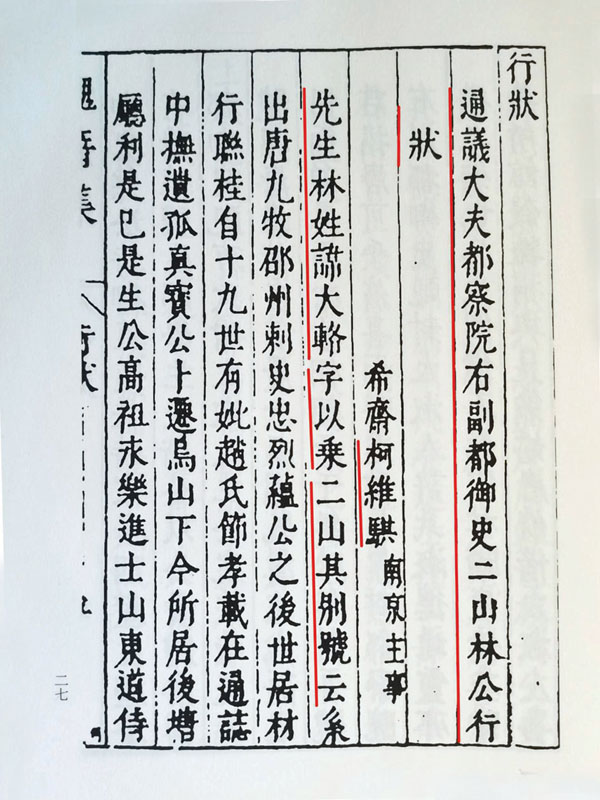 行狀
通議大夫都察院右副都御史二山林公行
狀
希齋柯維騏南京主事
先生林姓諱大輅字以乗二山其別號云系
出唐九牧邵州刺史忠烈蘊公之後世居材
行聯桂自十九世有妣趙氏節孝載在通誌
中撫遺孤真寳公卜遷烏山下今所居後塘
廳利是已是生公高祖永樂進士山東道侍
愧瘖集
行狀
二七